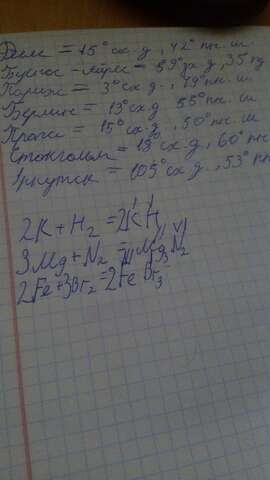 = 15° сх.д., 42° пн.ш
Буенос-Айрес = 59° зх.д., 35° пд
Париж = 3° сх.д., 49° пн.ш
Берлин = 13° сх.д 55° пн.ш.
= 15° сх.д, 50° пн.ш
Стокгольм = 19° сх.д., 60° пн
Іркутск = 105° сх.д., 53° пн
2K + H2 = 2KH
3Mg + N2 = Mg3N2
2Fe + 3Br2 = 2FeBr3